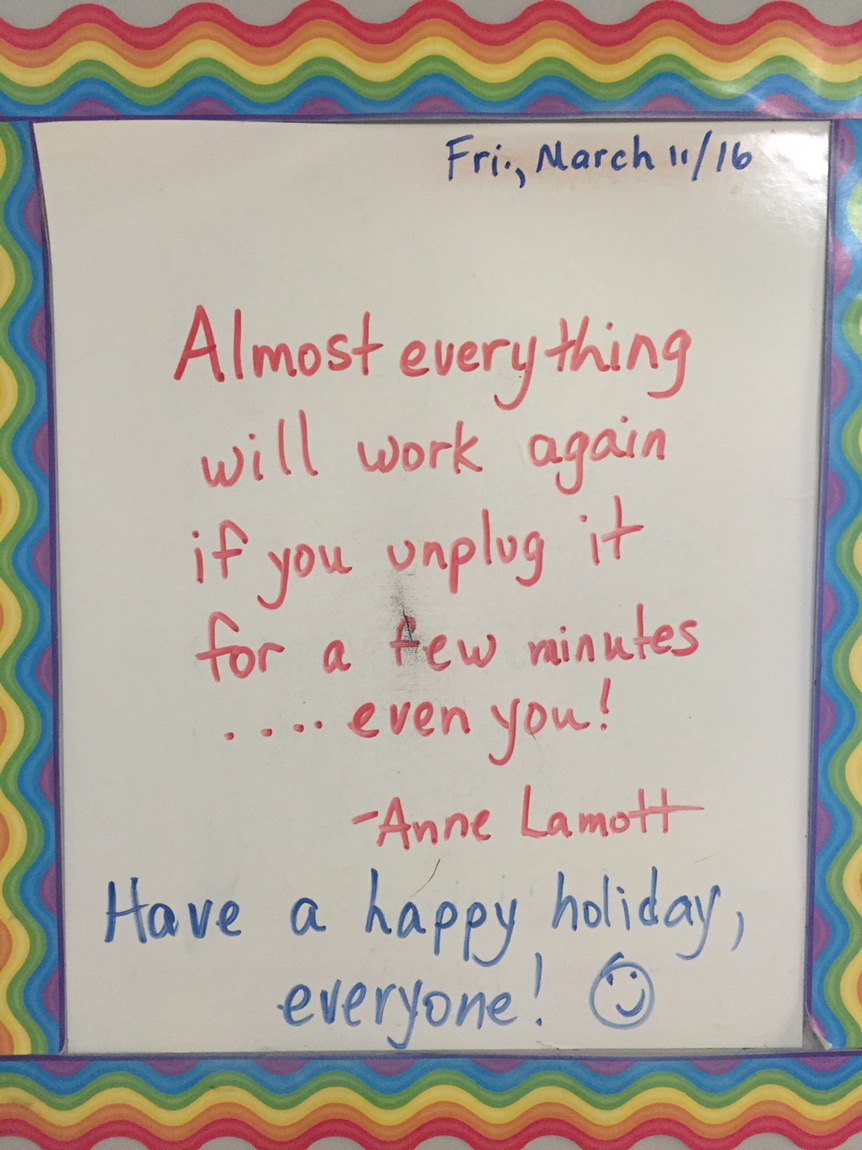 Fri., March 11/16
Almost everything
will work again
if you unplug it
for a few minutes
.... even you!
-Anne Lamott
Have a happy holiday,
everyone! ☺